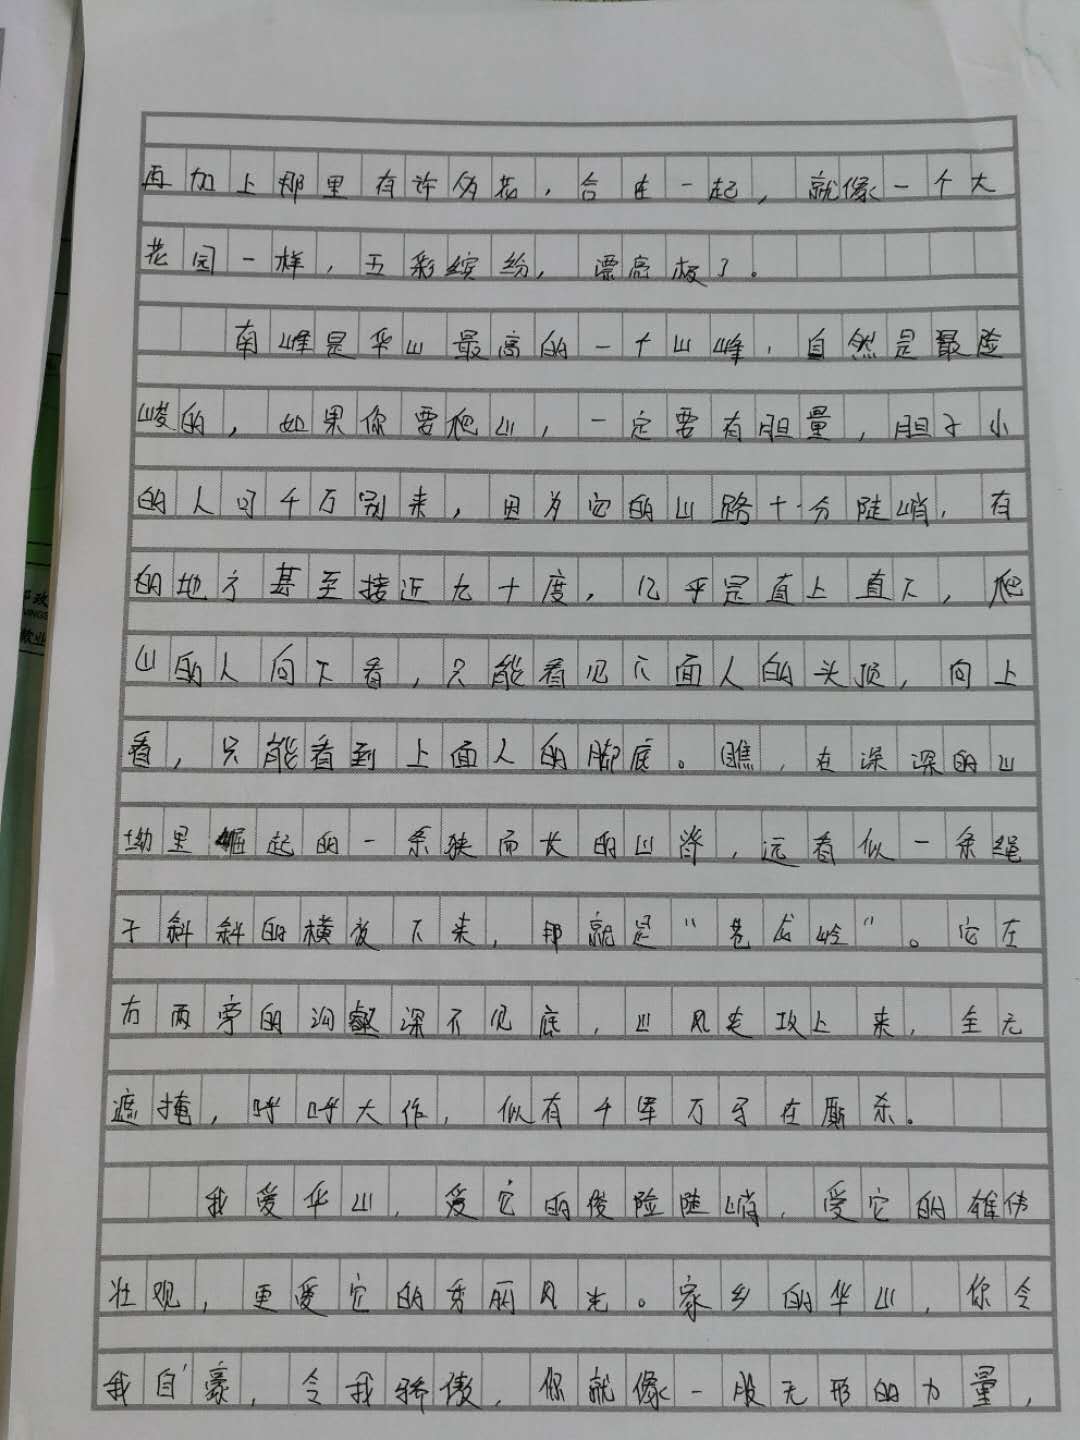 再加上那里有许多花，合在一起，就像一个大
花园一样，五彩缤纷，漂亮极了。
南峰是华山最高的一个山峰，自然是最险
峻的，如果你要爬山，一定要有胆量，胆子小
的人可千万别来，因为它的山路十分陡峭，有
的地方甚至接近九十度，几乎是直上直下，爬
山的人向下看，只能看见下面人的头顶，向上
看，只能看到上面人的脚底。瞧，在深深的山
坳里崛起的一条狭而长的山脊，远看似一条绳
子斜斜的横放下来，那就是“苍龙岭”。它左
右两旁的沟壑深不见底，山风走攻上来，全无
遮掩，呼呼大作，似有千军万马在厮杀。
我爱华山，爱它的俊险陡峭，爱它的雄伟
壮观，更爱它的秀丽风光。家乡的华山，你令
我自豪，令我骄傲，你就像一股无形的力量，
政
INGS
敬业